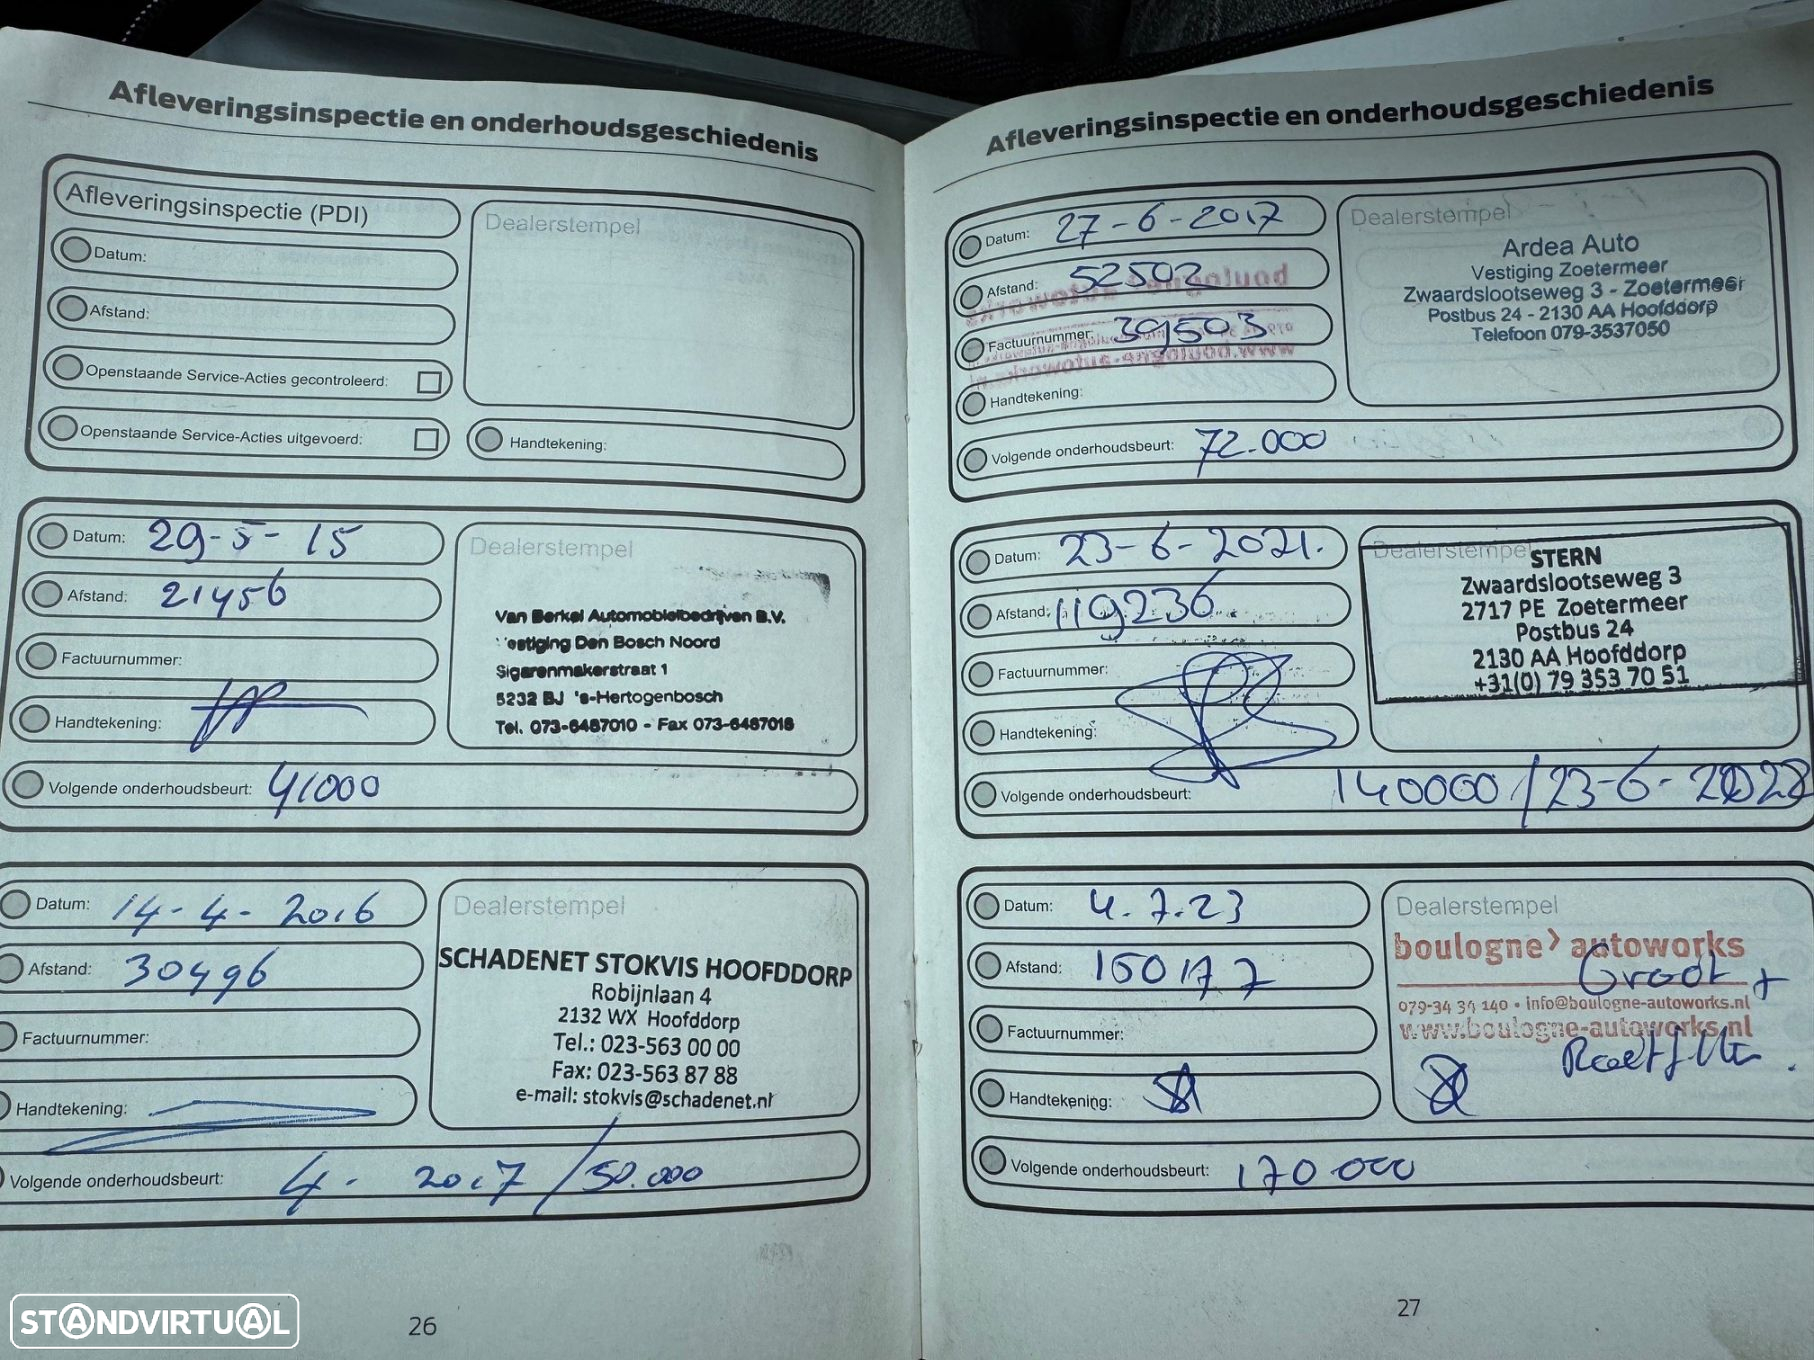 Afleveringsinspectie en onderhoudsgeschiedenis
Afleveringsinspectie (PDI)
Datum:
Afstand:
Openstaande Service-Acties gecontroleerd:
Openstaande Service-Acties uitgevoerd:
Dealerstempel
Handtekening:
Datum: 29-5-15
Afstand: 21456
Factuurnummer:
Handtekening:
Dealerstempel
Van Berkel Automobielbedrijven B.V.
Vestiging Den Bosch Noord
Sigarenmakerstraat 1
5232 BJ 's-Hertogenbosch
Tel. 073-6487010 - Fax 073-6487018
Volgende onderhoudsbeurt: 41000
Datum: 14-4-2016
Afstand: 30496
Factuurnummer:
Handtekening:
Dealerstempel
SCHADENET STOKVIS HOOFDDORP
Robijnlaan 4
2132 WX Hoofddorp
Tel.: 023-563 00 00
Fax: 023-563 87 88
e-mail: stokvis@schadenet.nl
Volgende onderhoudsbeurt: 4-2017/50.000
26
Afleveringsinspectie en onderhoudsgeschiedenis
Datum: 27-6-2017
Afstand: 52502
Factuurnummer: 39503
Handtekening:
Dealerstempel
Ardea Auto
Vestiging Zoetermeer
Zwaardslootseweg 3 - Zoetermeer
Postbus 24 - 2130 AA Hoofddorp
Telefoon 079-3537050
Volgende onderhoudsbeurt: 72.000
Datum: 23-6-2021.
Afstand: 119236.
Factuurnummer:
Handtekening:
Dealerstempel
STERN
Zwaardslootseweg 3
2717 PE Zoetermeer
Postbus 24
2130 AA Hoofddorp
+31(0) 79 353 70 51
Volgende onderhoudsbeurt: 140000/23-6-2022
Datum: 4.7.23
Afstand: 150177
Factuurnummer:
Handtekening:
Dealerstempel
boulogne> autoworks
Groot +
079-34 34 140 • info@boulogne-autoworks.nl
www.boulogne-autoworks.nl
Volgende onderhoudsbeurt: 170.000
27
STANDVIRTUAL